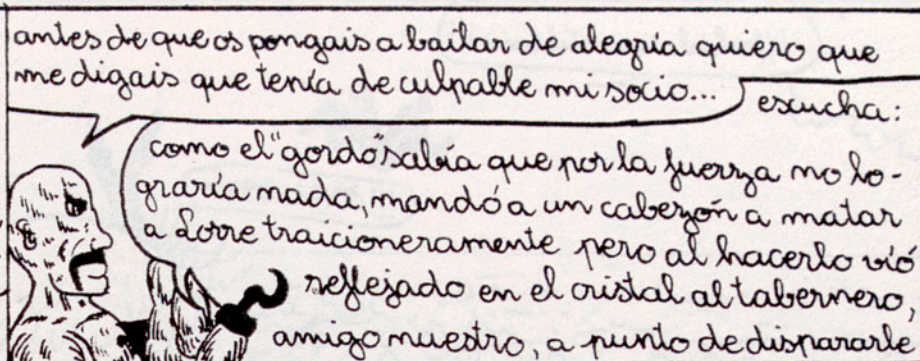 antes de que os pongais a bailar de alegría quiero que
me digais que tenía de culpable mi socio...
escucha:
como el "gordo" sabía que por la fuerza no lo-
graría nada, mandó a un cabezón a matar
a Lorre traicioneramente pero al hacerlo vió
reflejado en el cristal al tabernero,
amigo nuestro, a punto de dispararle